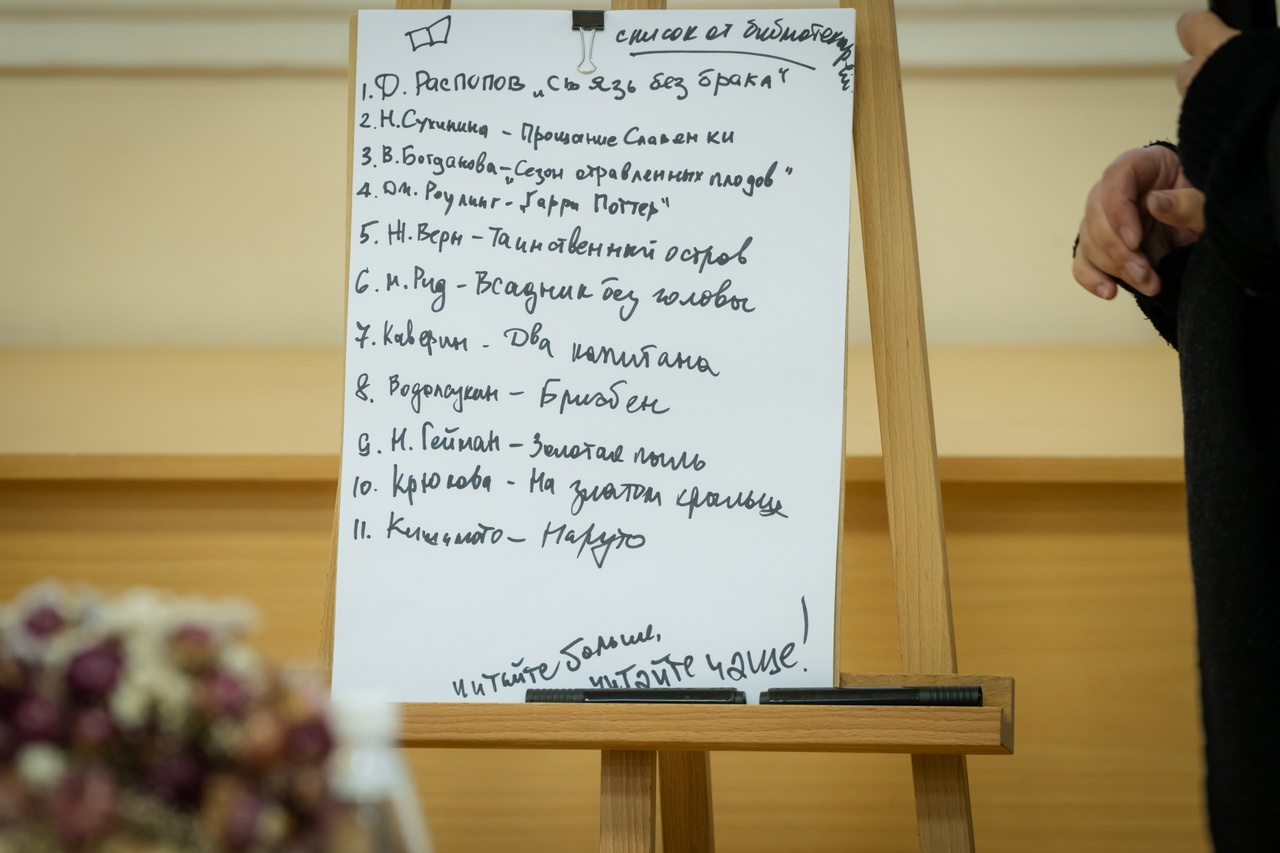 список от библиотекарей
1. Ф. Распопов „Связь без брака"
2. Н. Сухинина - Прощание Славенки
3. В. Богданова - „Сезон отравленных плодов"
4. Дж. Роулинг - „Гарри Поттер"
5. Ж. Верн - Таинственный остров
6. М. Рид - Всадник без головы
7. Каверин - Два капитана
8. Водолазкин - Бризбен
9. Н. Гейман - Золотая пыль
10. Крюкова - На златом крыльце
11. Кишимото - Наруто
читайте больше,
читайте чаще!